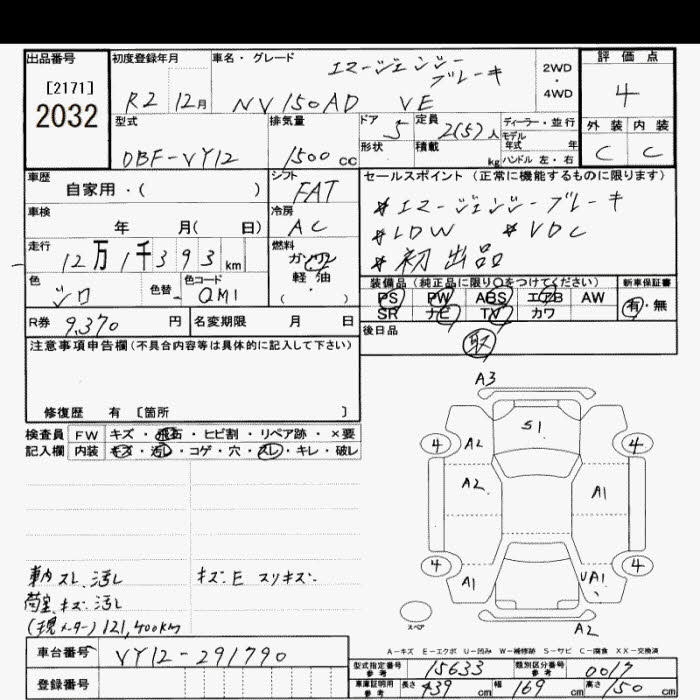 出品番号
[2171]
2032
初度登録年月
R2 12月
車名・グレード
エマージェンシーブレーキ
NV150AD VE
2WD・4WD
評価点
4
外装 内装
C C
型式
DBF-VY12
排気量
1500 cc
ドア 5
形状
定員 2(5)人
積載 kg
ディーラー・並行
モデル年式 年
ハンドル 左・右
車歴
自家用・( )
シフト
FAT
車検
年 月( 日)
冷房
AC
走行
12万1千393km
燃料
ガソリン
軽油
・( )
色
シロ
色替
色コード
QM1
R券 9,370 円
名変期限 月 日
セールスポイント(正常に機能するものに限ります)
*エマージェンシーブレーキ
*LDW *VDC
*初出品
装備品(純正品に限り○をつけてください)
新車保証書
PS PW ABS エアB AW
SR ナビ TV カワ
有・無
後日品
取
注意事項申告欄(不具合内容等は具体的に記入して下さい)
修復歴 有 [箇所 ]
検査員記入欄
FW キズ・飛石・ヒビ割・リペア跡・×要
内装 キズ・汚レ・コゲ・穴・スレ・キレ・破レ
車内スレ、汚レ
荷室、キズ、汚レ
(現メーター)121,400km
キズE スリキズ
A3
S1
4 A2 4
A2 A1
4 A1 UA1 4
スペア
A2
A-キズ E-エクボ U-凹み W-補修跡 S-サビ C-腐食 XX-交換済
車台番号 VY12-291790
登録番号
型式指定番号 参考 15633
類別区分番号 参考 0017
車庫証明用 参考 長さ 439cm 幅 169cm 高さ 150cm